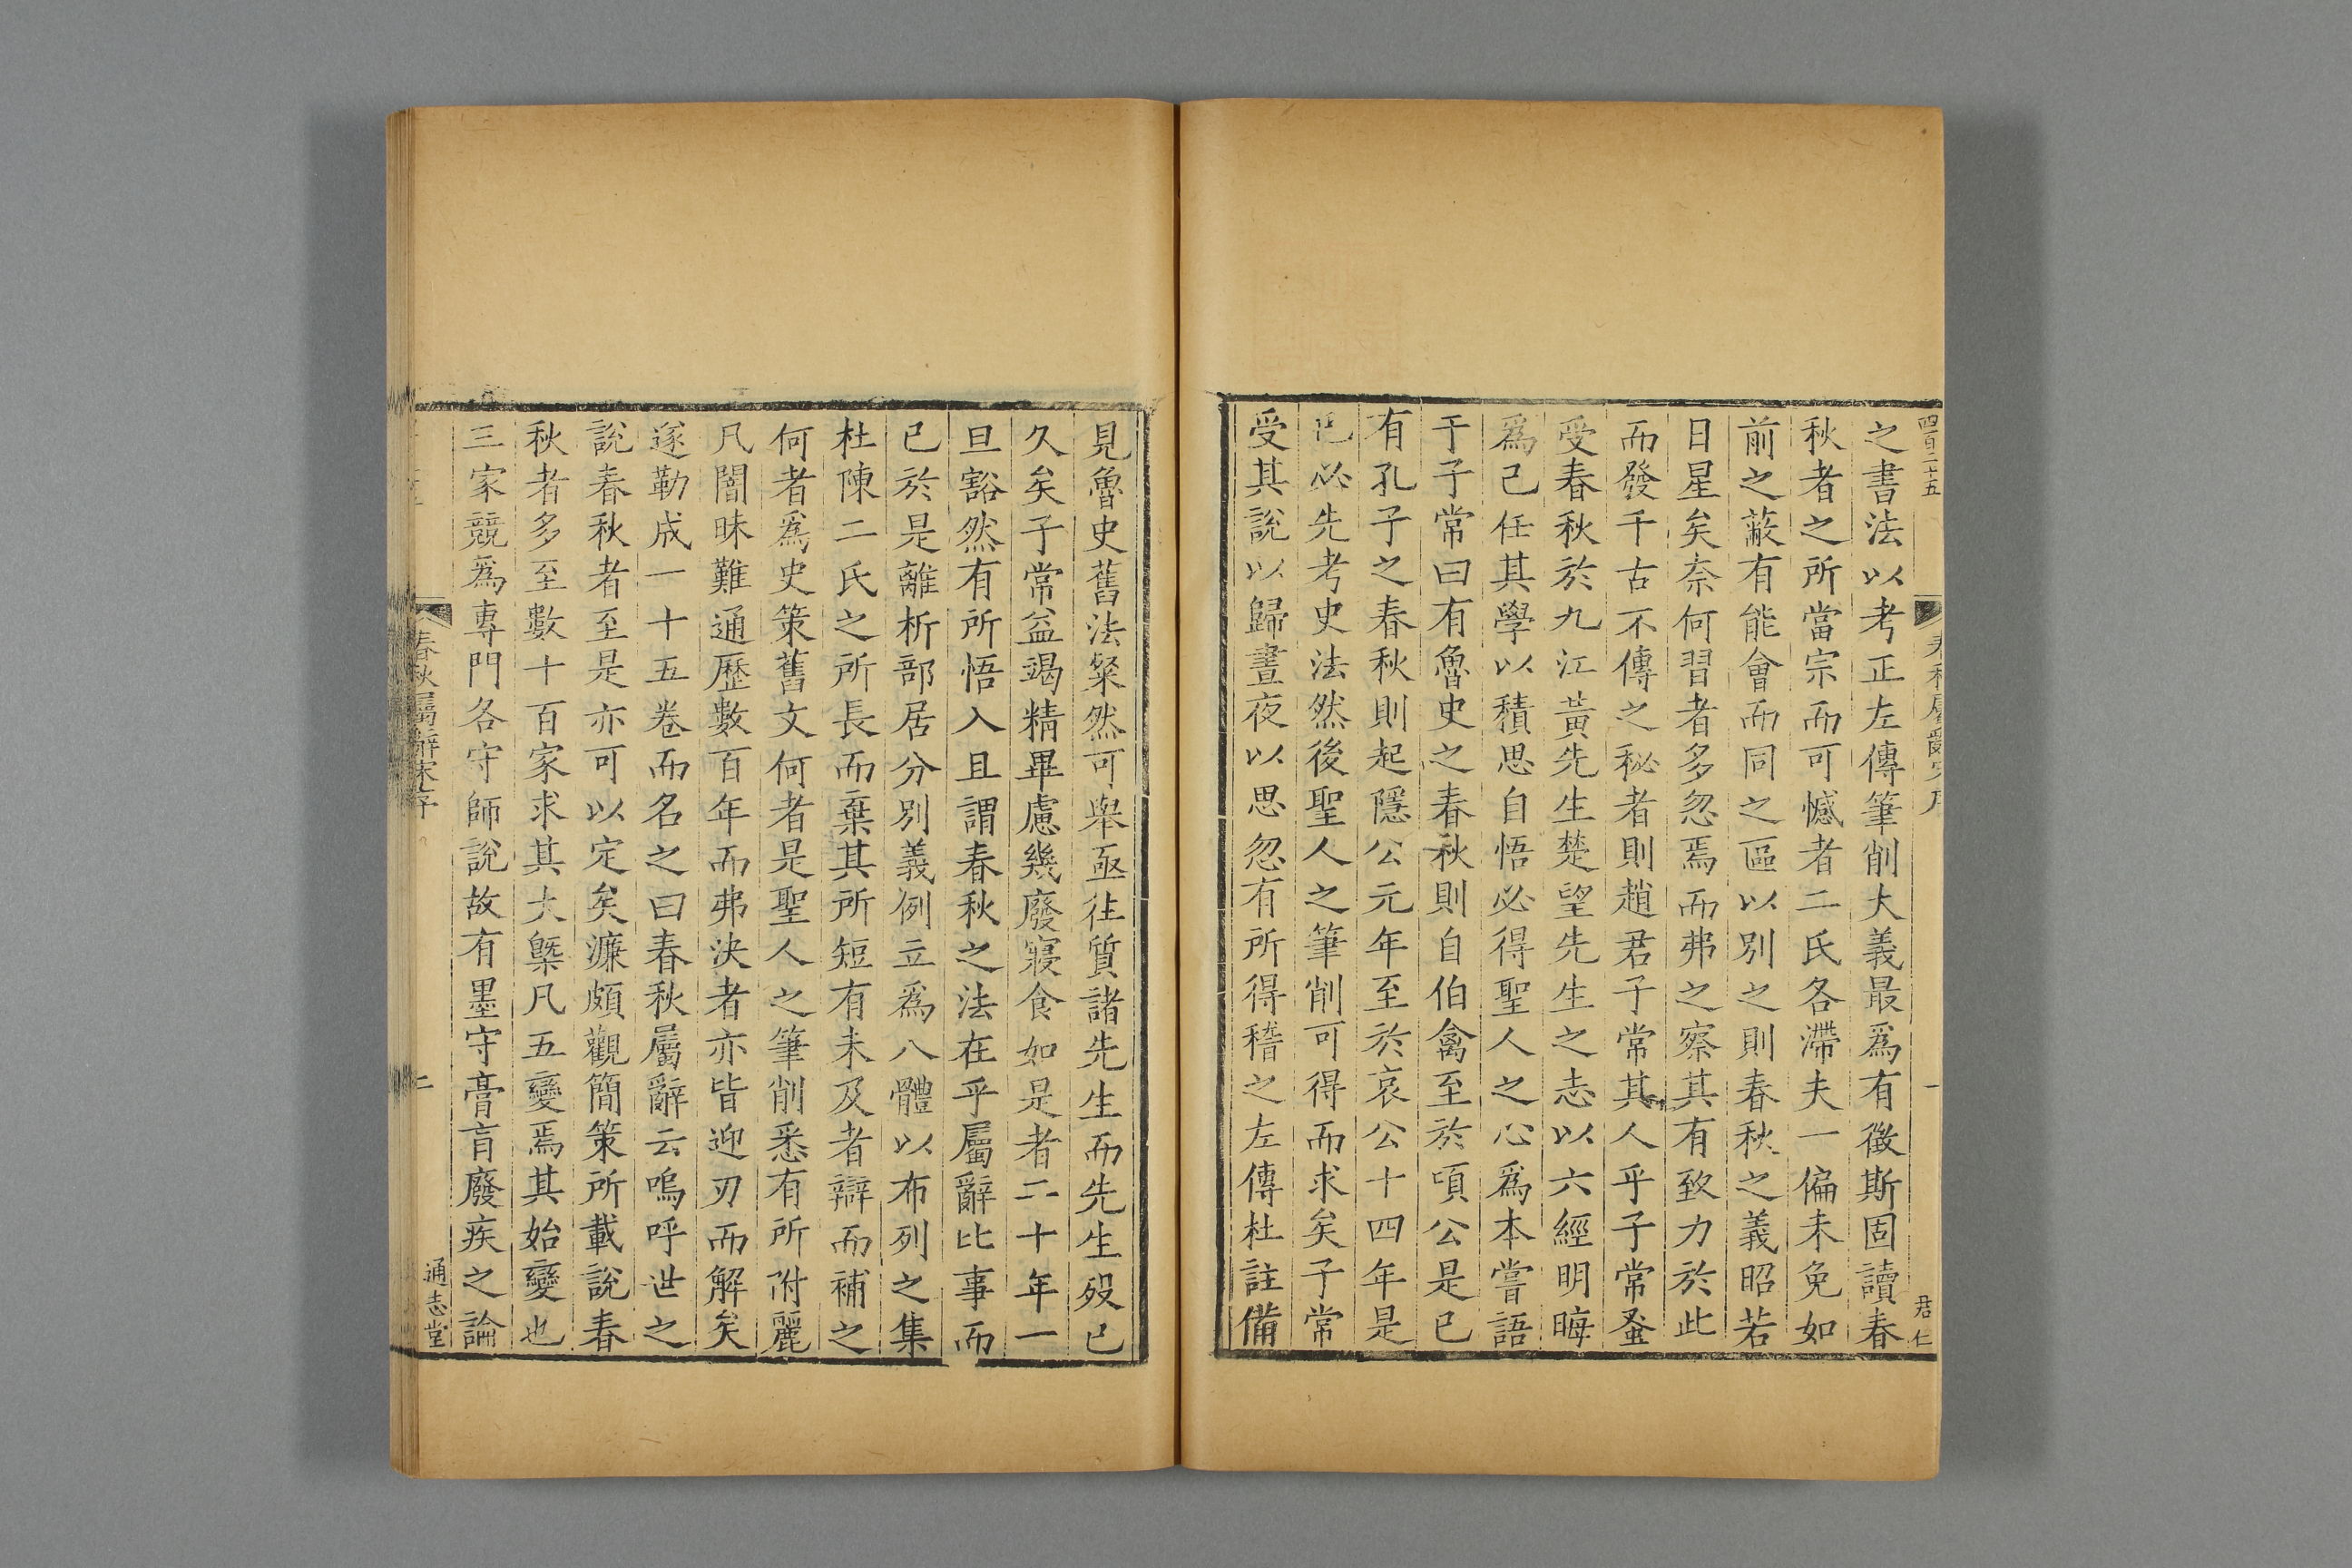 四百二十五
春秋屬辭宋序
一
君仁
之書法以考正左傳筆削大義最爲有徵斯固讀春
秋者之所當宗而可憾者二氏各滯夫一偏未免如
前之蔽有能會而同之區以別之則春秋之義昭若
日星矣柰何習者多忽焉而弗之察其有致力於此
而發千古不傳之秘者則趙君子常其人乎子常蚤
受春秋於九江黃先生楚望先生之志以六經明晦
爲己任其學以積思自悟必得聖人之心爲本嘗語
于子常曰有魯史之春秋則自伯禽至於頃公是已
有孔子之春秋則起隱公元年至於哀公十四年是
已必先考史法然後聖人之筆削可得而求矣子常
受其說以歸晝夜以思忽有所得稽之左傳杜註備
見魯史舊法粲然可舉亟徃質諸先生而先生歿已
久矣子常益竭精畢慮幾廢寢食如是者二十年一
旦豁然有所悟入且謂春秋之法在乎屬辭比事而
已於是離析部居分別義例立爲八體以布列之集
杜陳二氏之所長而棄其所短有未及者辯而補之
何者爲史策舊文何者是聖人之筆削悉有所附麗
凡闇昧難通歷數百年而弗決者亦皆迎刃而解矣
遂勒成一十五卷而名之曰春秋屬辭云嗚呼世之
說春秋者至是亦可以定矣濂頗觀簡策所載說春
秋者多至數十百家求其大槩凡五變焉其始變也
三家競爲專門各守師說故有墨守膏肓廢疾之論
春秋屬辭宋序
二
通志堂